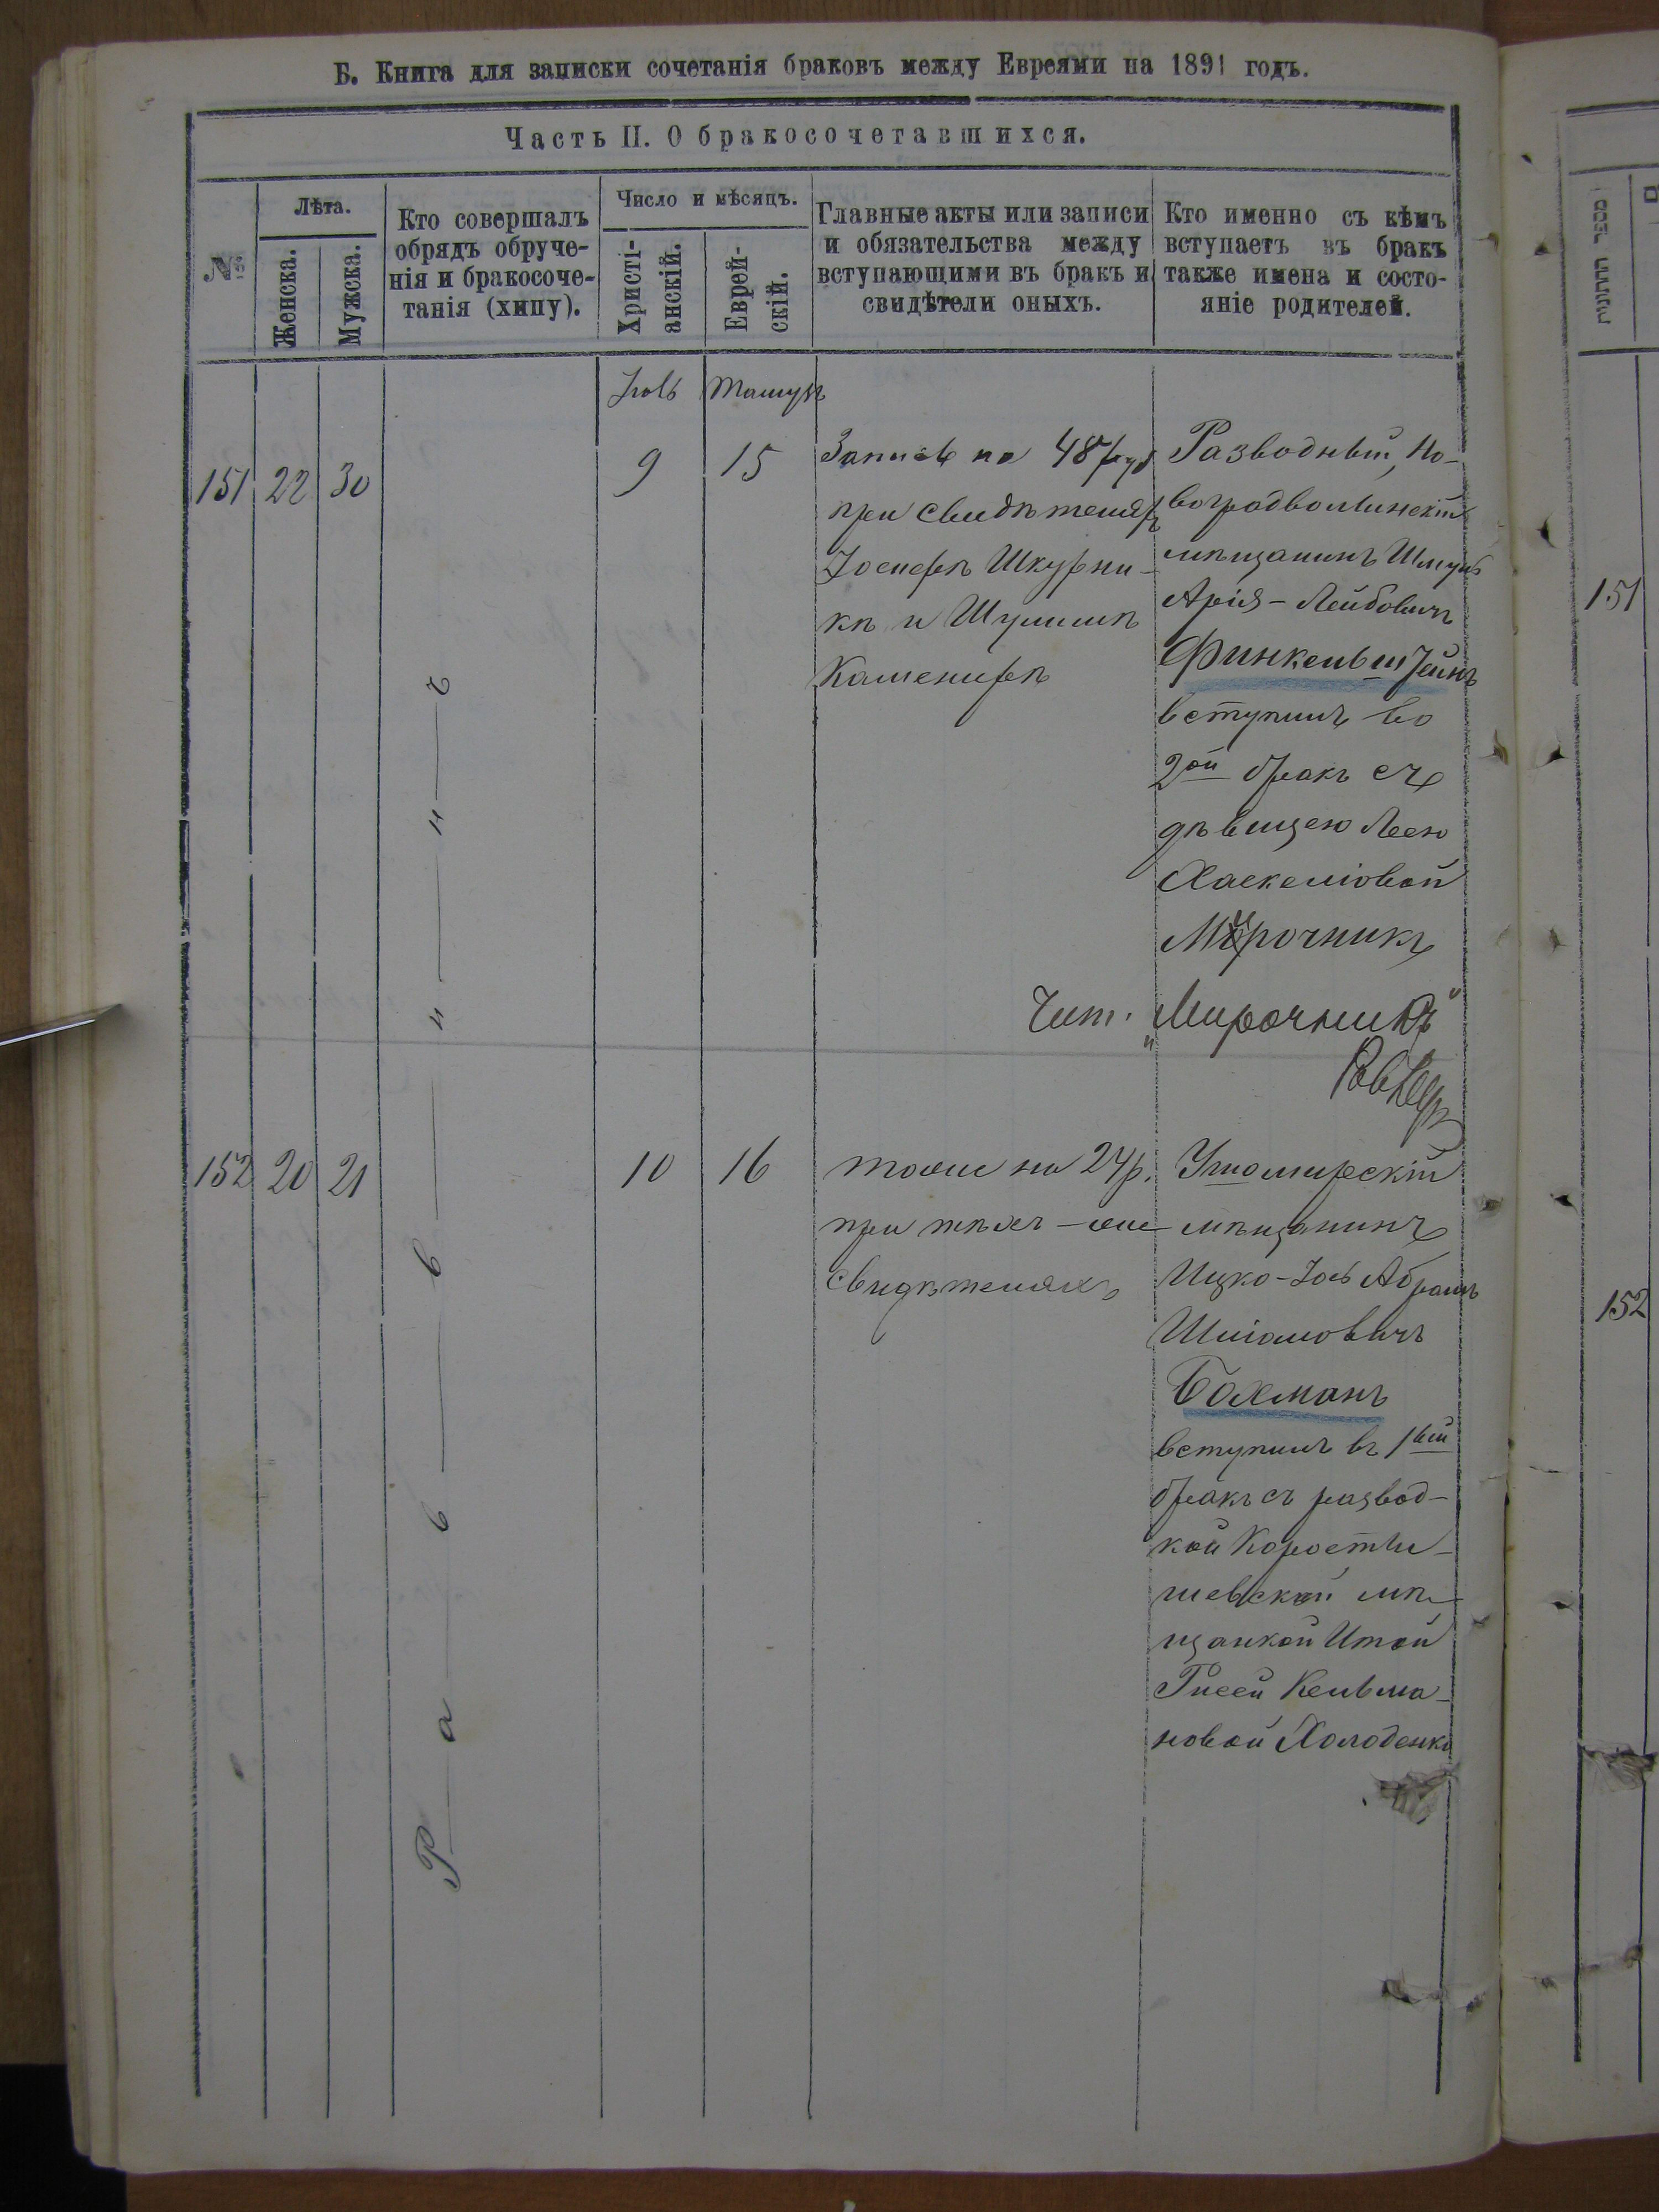 Б. Книга для записки сочетанія браковъ между Евреями на 1891 годъ.
Часть II. О бракосочетавшихся.
№
Лѣта.
Женска.
Мужска.
Кто совершалъ
обрядъ обруче-
нія и бракосоче-
танія (хипу).
Число и мѣсяцъ.
Христі-
анскій.
Еврей-
скій.
Главные акты или записи
и обязательства между
вступающими въ бракъ и
свидѣтели оныхъ.
Кто именно съ кѣмъ
вступаетъ въ бракъ
также имена и состо-
яніе родителей.
Іюль
Тамузъ
151
22
30
9
15
Запись на 48 руб
при свидѣтеляхъ
Іосифѣ Шкурни-
кѣ и Шулимѣ
Каменирѣ
Разводный, Но-
воградволынскій
мѣщанинъ Шмуль
Арія-Лейбовичъ
Финкельштейнъ
вступилъ во
2ой бракъ съ
дѣвицею Леею
Хаскеліовой
Мирочникъ
Чит. „Мирочникъ"
152
20
21
10
16
тоже на 24 р.
при тѣхъ-же
свидѣтеляхъ
Ушомирскій
мѣщанинъ
Ицко-Іось Абрамъ
Шліомовичъ
Бахманъ
вступилъ въ 1ый
бракъ съ развод-
кой Коросты-
шевской мѣ-
щанкой Итой
Рисей Кельма-
новой Холоденко
Р а в в и н ъ
מספר החתונות
151
152